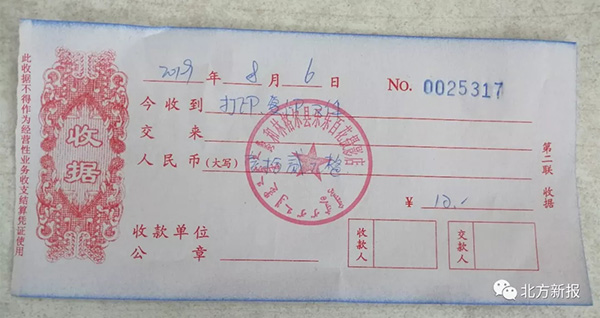 此收据不得作为经营性业务收支结算凭证使用
收据
2019 年 8 月 6 日
No. 0025317
今收到 打印复印文件
交来
人民币(大写)
¥ 10.-
第二联 收据
收款单位
公章
收款人
交款人
北方新报